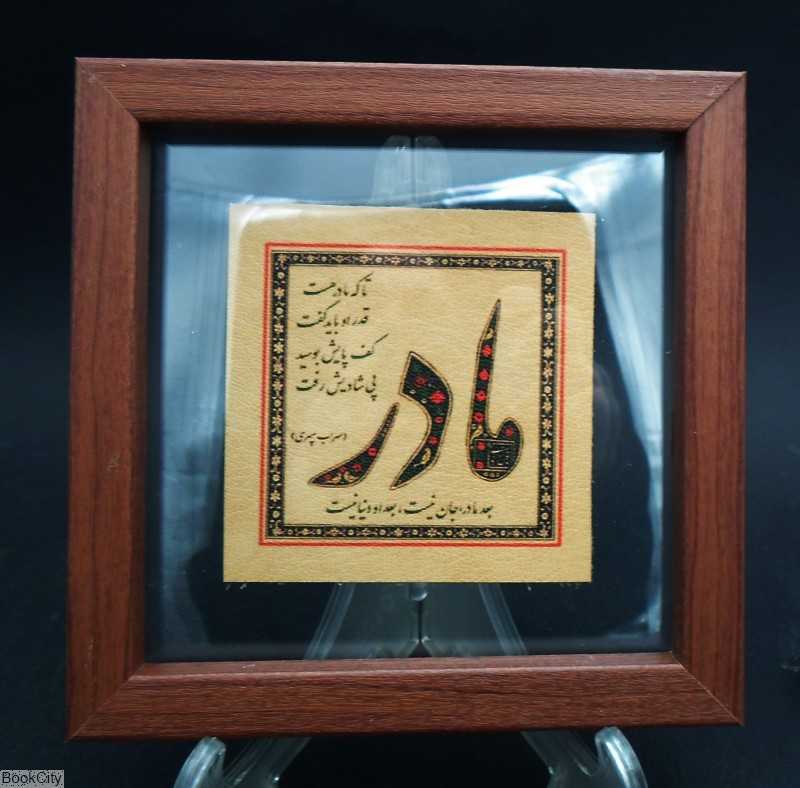 تا که مادر هست
قدر او باید گفت
کف پایش بوسید
پی شادیش رفت
(سهراب سپهری)
مادر
بعد مادر، جان نیست، بعد او دنیا نیست
BookCity